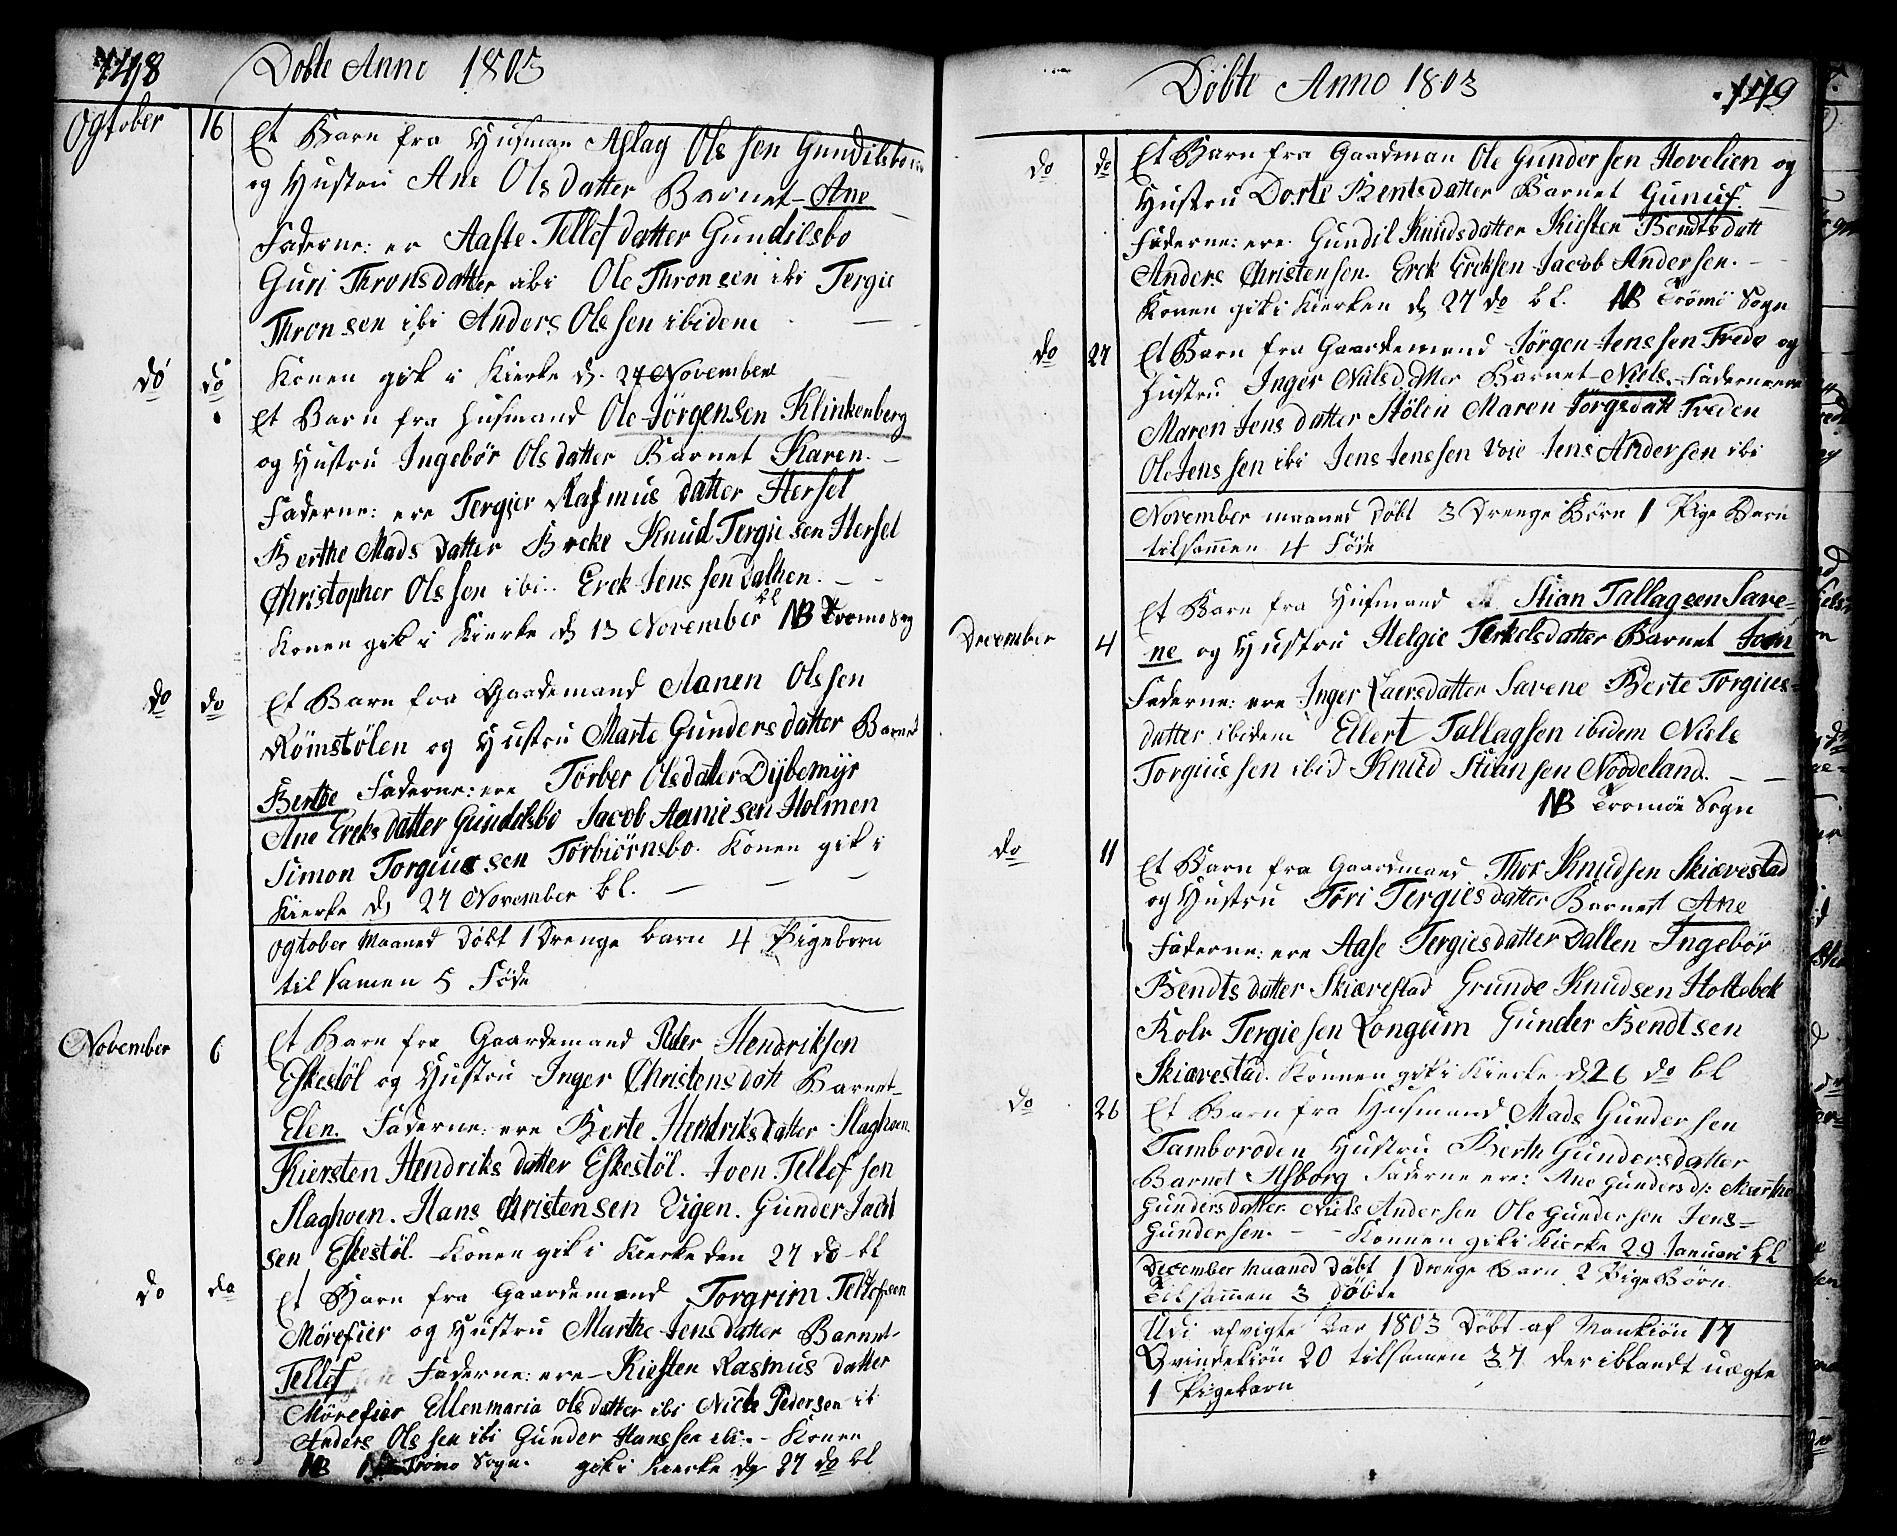 148 Dobte Anno 1803
Ogtober 16 Et Barn fra Husman Aslag Olssen Gundilsboen
og Hustru Ane Olsdatter Barnet Ane
Faderne: er Aaste Tellefdatter Gundilsbo
Guri Thronsdatter ibi Ole Thronsen ibi Tergie
Thronsen ibi Anders Olssen ibidem
Konen gik i Kierke d. 27 November
do do Et Barn fra Husmand Ole Jörgensen Klinkenberg
og Hustru Ingebör Olsdatter Barnet Karen.
Faderne: ere Tergier Rasmusdatter Hersel
Berthe Madsdatter Knud Tergiesen Hersel
Christopher Olssen ibi. Erck Jenssen Dalhen.
Konen gik i Kierke d 13 November kl NB Tromö Sogn
do do Et Barn fra Gaardemand Aanen Olssen
Römstölen og Hustru Marte Gundersdatter Barnet
Berthe Faderne: ere Törber Olsdatter Dybemyr
Ane Ercksdatter Gundilsbo Jacob Aaniesen Holmen
Simon Torgiussen Torbiörnsbo. Konen gik i
Kierke d 27 November kl.
Ogtober Maaned döbt 1 Drenge barn 4 Pigebörn
tilsamen 5 Föde
November 6 Et Barn fra Gaardemand Peder Hendriksen
Eskestöl og Hustru Inger Christensdatt Barnet
Elen. Faderne: ere Berte Hendriksdatter Slaghoen
Kiersten Hendriksdatter Eskestöl. Joen Tellefsen
Slaghoen. Hans Christensen Vigen. Gunder Jacob
sen Eskestöl. Konen gik i Kierke den 27 do kl
do do Et Barn fra Gaardemand Torgrim Tellefsen
Mörefier og Hustru Marthe Jensdatter Barnet
Tellef Faderne: ere Kiesten Rasmusdatter
Mörefier Ellenmaria Olsdatter ibi Niels Pedersen ibi
Anders Olssen ibi Gunder Hanssen ibi. Konen
NB Tromö Sogn. gik i Kierke d 27 do kl
Döbte Anno 1803 149
do do Et Barn fra Gaardman Ole Gundersen Hovelien og
Hustru Dorte Bentsdatter Barnet Gunuf.
Faderne: ere. Gundil Knudsdatter Kiesten Bendtsdatt
Anders Christensen. Erck Ercksen Jacob Andersen.
Konen gik i Kierken d 27 do kl. NB Trömö Sogn
do 27 Et Barn fra Gaardemand Jörgen Jenssen Frede og
Hustru Inger Nilsdatter Barnet Niels. Faderne ere
Maren Jensdatter Stölen Maren Jörgsdatt Freden
Ole Jenssen ibi Jens Jenssen Voie Jens Andersen ibi
November maaned döbt 3 Drenge Börn 1 Pige Barn
tilsammen 4 Föde
December 4 Et Barn fra Husmand Stian Tallagsen Save-
ne og Hustru Helgie Terkelsdatter Barnet Joen
Faderne: ere Inger Laersdatter Savene Berte Torgius-
datter ibidem Ellert Tallagsen ibidem Niels
Torgiussen ibid Knud Stiansen Nöddeland.
NB Tromöe Sogn
do 11 Et Barn fra Gaardmand Thor Knudsen Skiærestad
og Hustru Töri Tergiesdatter Barnet Ane
Faderne: ere Aase Tergiesdatter Dallen Ingebör
Bendtsdatter Skiærestad Grunde Knudsen Holtebek
Rolv Tergiesen Longum Gunder Bendtsen
Skiærestad. Konnen gik i Kierke d 26 do kl
do 26 Et Barn fra Husmand Mads Gundersen
Tamboroden Hustru Berthe Gundersdatter
Barnet Asborg Faderne ere: Ane Gundersd: Marthe
Gundersdatter Niels Andersen Ole Gundersen Jens
Gundersen. Konnen gik i Kierke 29 Januari kl
December Maaned Döbt 1 Drenge Barn 2 Pige Börn
Tilsammen 3 döbte
Udi afvigte Aar 1803 Döbt af Mankiön 17
Qvindekiön 20 tilsamen 37 der iblandt uægte
1 Pigebarn